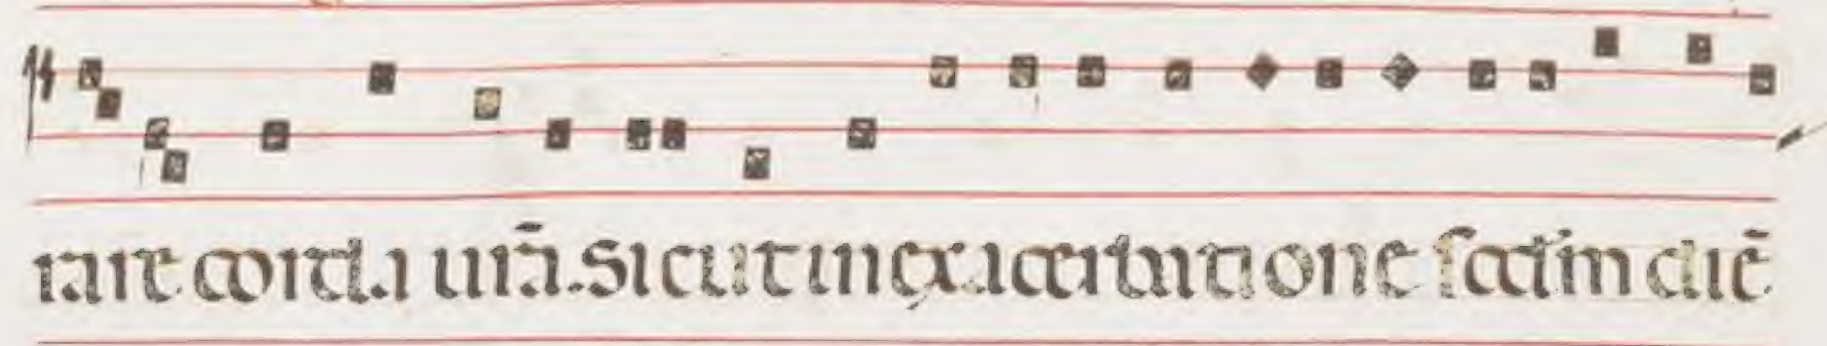 rare corda ur̃a. Sicut in exacerbatione scd̃m diẽ